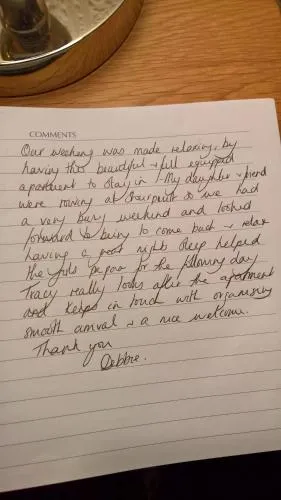 COMMENTS
Our weekend was made relaxing, by
having this beautiful + full equipped
apartment to stay in. My daughter + friend
were rowing at so we had
a very busy weekend and looked
forward to being to come back + relax
having a good nights sleep helped
the girls prepare for the following day
Tracy really looks after the apartment
and keeps in touch with organising
smooth arrival + a nice welcome.
Thank you
Debbie.